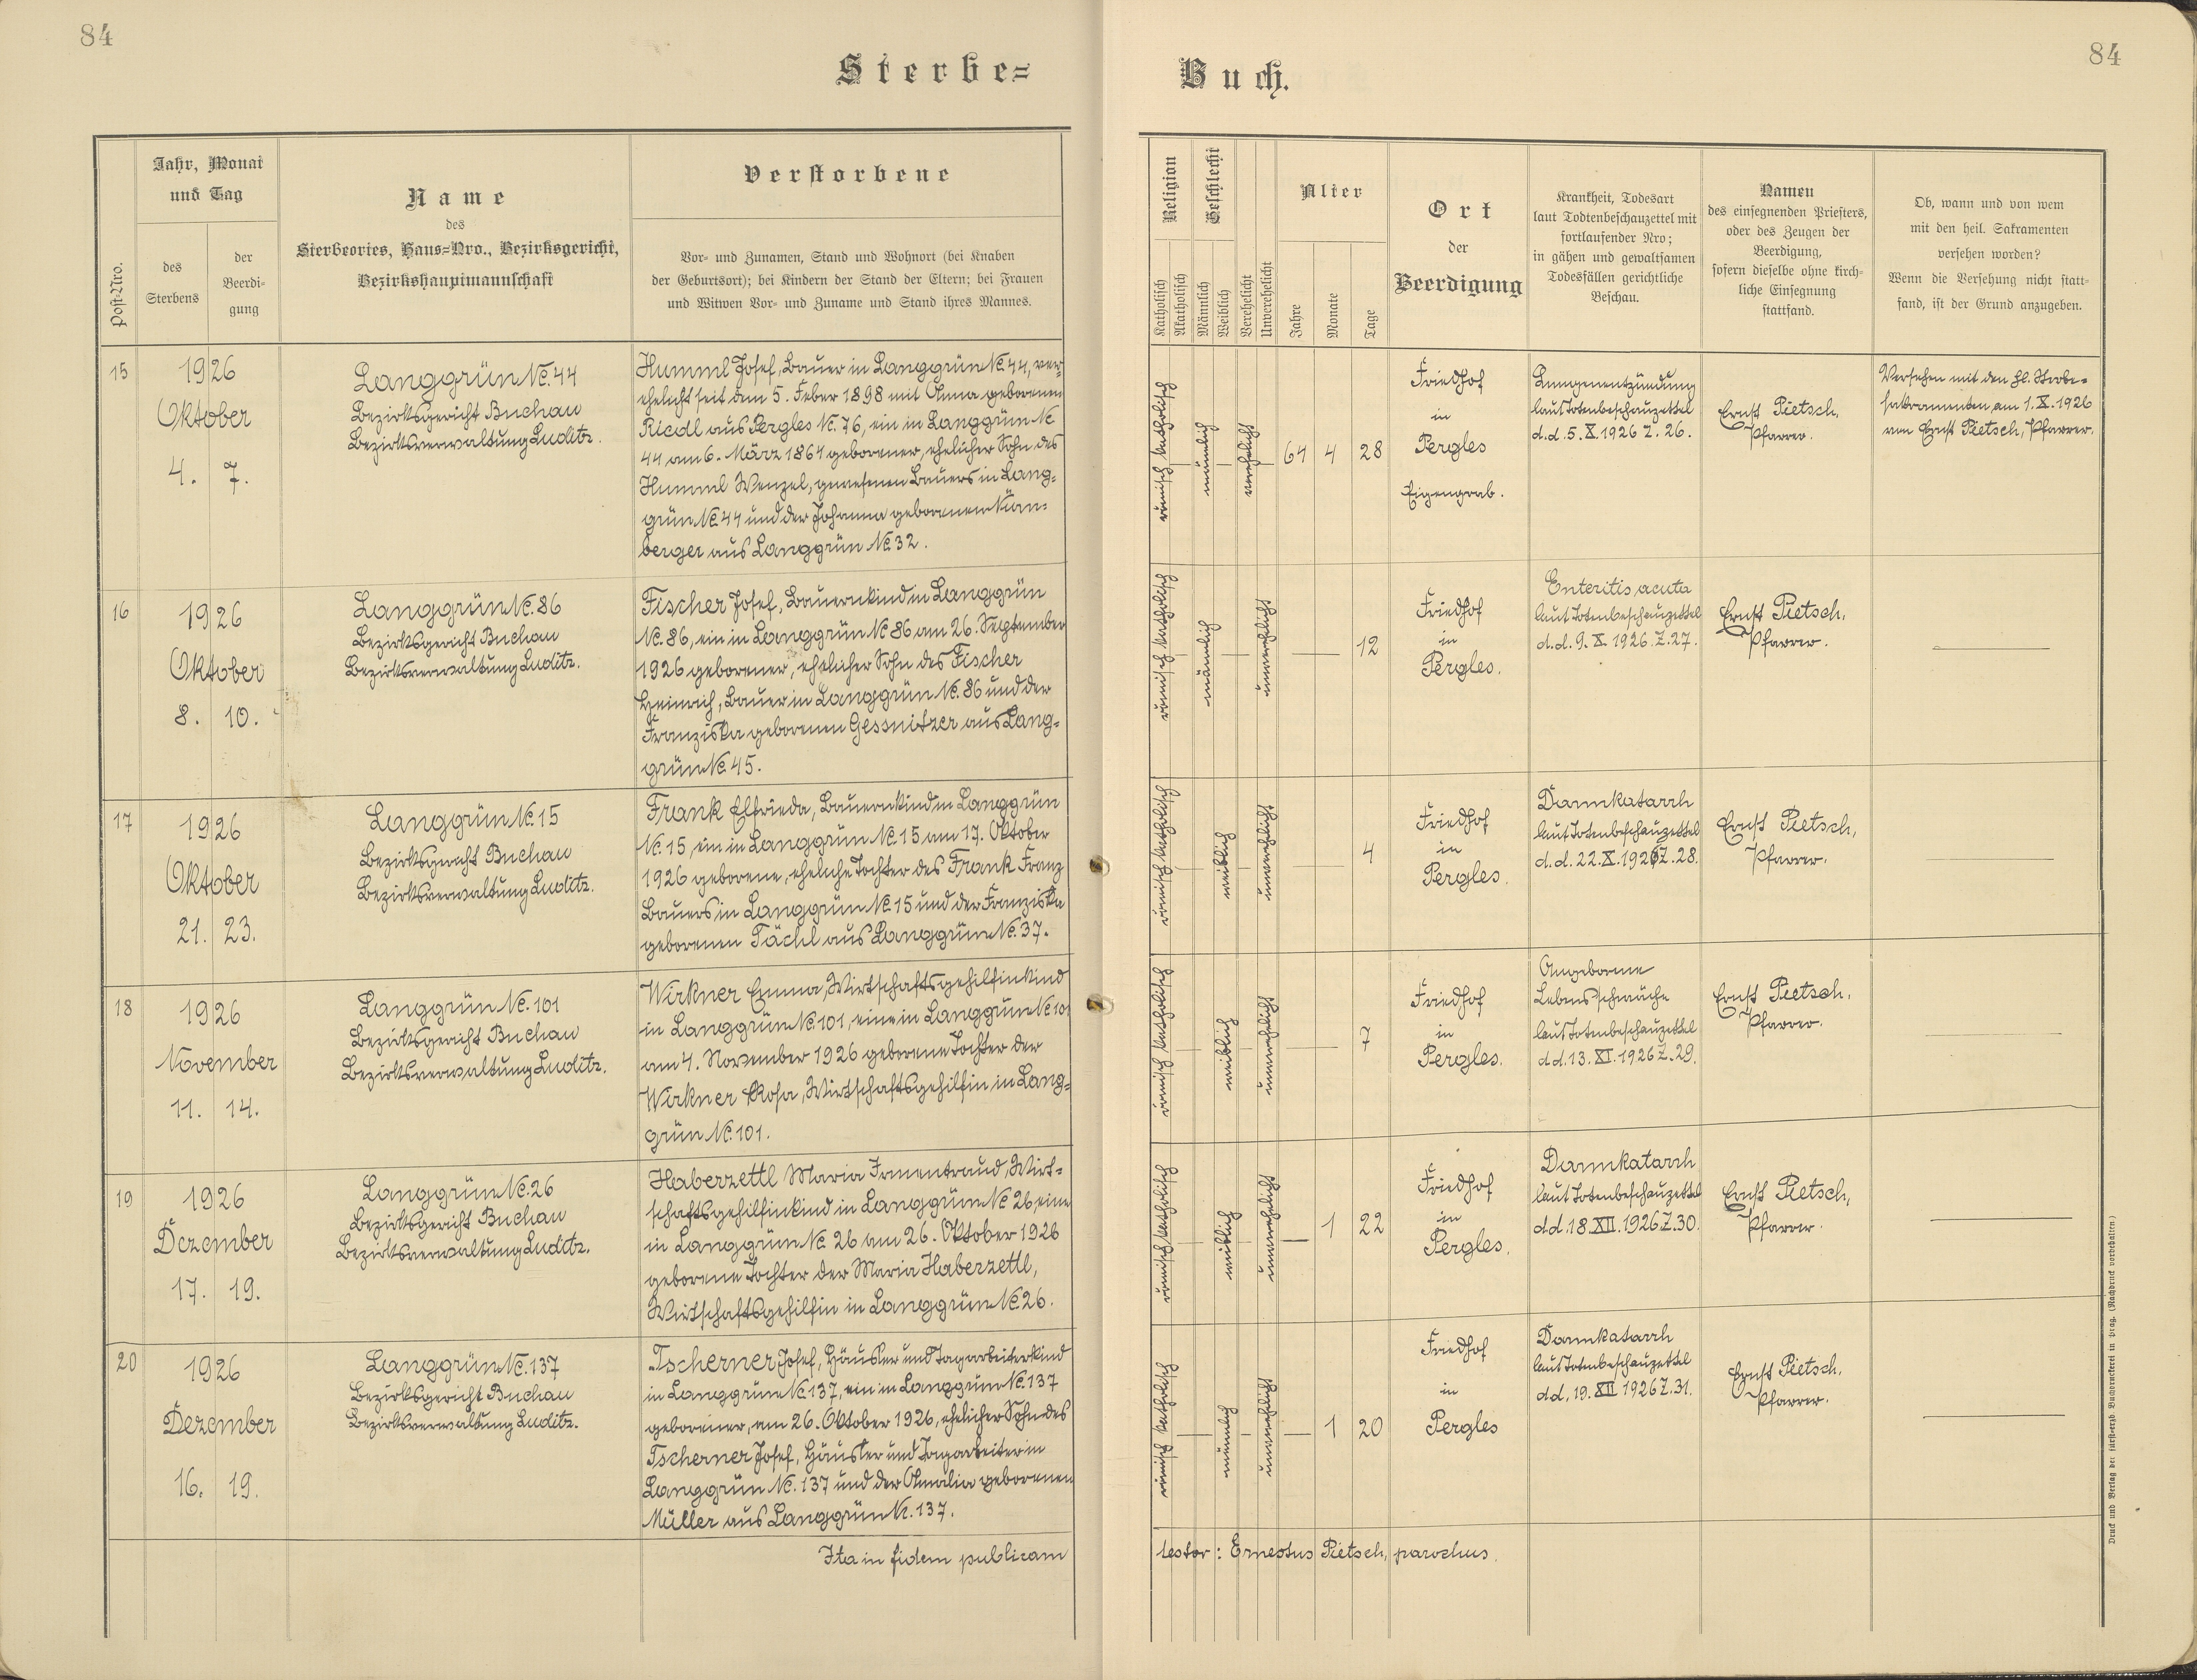 84
84
Sterbe=
Buch.
Post-Nro.
Jahr, Monat
und Tag
des
Sterbens
der
Beerdi-
gung
Name
des
Sterbeortes, Haus=Nro., Bezirksgericht,
Bezirkshauptmannschaft
Verstorbene
Vor- und Zunamen, Stand und Wohnort (bei Knaben
der Geburtsort); bei Kindern der Stand der Eltern; bei Frauen
und Witwen Vor- und Zuname und Stand ihres Mannes.
Religion
Katholisch
Akatholisch
Geschlecht
Männlich
Weiblich
Verehelicht
Unverehelicht
Alter
Jahre
Monate
Tage
Ort
der
Beerdigung
Krankheit, Todesart
laut Todtenbeschauzettel mit
fortlaufender Nro;
in gähen und gewaltsamen
Todesfällen gerichtliche
Beschau.
Namen
des einsegnenden Priesters,
oder des Zeugen der
Beerdigung,
sofern dieselbe ohne kirch-
liche Einsegnung
stattfand.
Ob, wann und von wem
mit den heil. Sakramenten
versehen worden?
Wenn die Versehung nicht statt-
fand, ist der Grund anzugeben.
15
1926
Oktober
4. 7.
Langgrün No. 44
Bezirksgericht Buchau
Bezirksverwaltung Luditz.
Humml Josef, Bauer in Langgrün No. 44, ver-
ehelicht seit dem 5. Feber 1898 mit Anna geborenen
Riedl aus Pergles No. 76, ein in Langgrün No
44 am 6. März 1864 geborener, ehelicher Sohn des
Humml Wenzel, gewesenen Bauers in Lang-
grün No. 44 und der Johanna geborenen Kan-
berger aus Langgrün No. 32.
römisch katholisch
männlich
verehelicht
64 4 28
Friedhof
in
Pergles
Eigengrab.
Lungenentzündung
laut Totenbeschauzettel
d.d. 5. X. 1926 Z. 26.
Ernst Pietsch,
Pfarrer.
Versehen mit den hl. Sterbe-
sakramenten, am 1. X. 1926
von Ernst Pietsch, Pfarrer.
16
1926
Oktober
8. 10.
Langgrün No. 86
Bezirksgericht Buchau
Bezirksverwaltung Luditz.
Fischer Josef, Bauernkind in Langgrün
No. 86, ein in Langgrün No 86 am 26. September
1926 geborener, ehelicher Sohn des Fischer
Heinrich, Bauer in Langgrün No. 86 und der
Franziska geborenen Gessnitzer aus Lang-
grün No. 45.
römisch katholisch
männlich
unverehelicht
12
Friedhof
in
Pergles.
Enteritis acuta
laut Totenbeschauzettel
d.d. 9. X. 1926. Z. 27.
Ernst Pietsch,
Pfarrer.
17
1926
Oktober
21. 23.
Langgrün No. 15
Bezirksgericht Buchau
Bezirksverwaltung Luditz.
Frank Elfrieda, Bauernkind in Langgrün
No. 15, ein in Langgrün No. 15 am 17. Oktober
1926 geborene, eheliche Tochter des Frank Franz
Bauers in Langgrün No. 15 und der Franziska
geborenen Tächl aus Langgrün No. 37.
römisch katholisch
weiblich
unverehelicht
4
Friedhof
in
Pergles.
Darmkatarrh
laut Totenbeschauzettel
d.d. 22. X. 1926 Z. 28.
Ernst Pietsch,
Pfarrer.
18
1926
November
11. 14.
Langgrün No. 101
Bezirksgericht Buchau
Bezirksverwaltung Luditz.
Wirkner Emma, Wirtschaftsgehilfinkind
in Langgrün No. 101, eine in Langgrün No 101
am 4. November 1926 geborene Tochter der
Wirkner Rosa, Wirtschaftsgehilfin in Lang-
grün No. 101.
römisch katholisch
weiblich
unverehelicht
7
Friedhof
in
Pergles.
Angeborene
Lebensschwäche
laut Totenbeschauzettel
d.d. 13. XI. 1926 Z. 29.
Ernst Pietsch,
Pfarrer.
19
1926
Dezember
17. 19.
Langgrün No. 26
Bezirksgericht Buchau
Bezirksverwaltung Luditz.
Haberzettl Maria Irmentraud, Wirt-
schaftsgehilfinkind in Langgrün No 26, eine
in Langgrün No 26 am 26. Oktober 1926
geborene Tochter der Maria Haberzettl,
Wirtschaftsgehilfin in Langgrün No. 26.
römisch katholisch
weiblich
unverehelicht
1 22
Friedhof
in
Pergles.
Darmkatarrh
laut Totenbeschauzettel
d.d. 18. XII. 1926 Z. 30.
Ernst Pietsch,
Pfarrer.
20
1926
Dezember
16. 19.
Langgrün No. 137
Bezirksgericht Buchau
Bezirksverwaltung Luditz.
Tscherner Josef, Häusler und Tagarbeiterkind
in Langgrün No. 137, ein in Langgrün No. 137
geborener, am 26. Oktober 1926, ehelicher Sohn des
Tscherner Josef, Häusler und Tagarbeiter in
Langgrün No. 137 und der Amalia geborenen
Müller aus Langgrün No. 137.
römisch katholisch
männlich
unverehelicht
1 20
Friedhof
in
Pergles
Darmkatarrh
laut Totenbeschauzettel
d.d. 19. XII 1926 Z. 31.
Ernst Pietsch,
Pfarrer.
Ita in fidem publicam
testor: Ernestus Pietsch, parochus.
Druck und Verlag der fürst-erzb. Buchdruckerei in Prag. (Nachdruck vorbehalten)